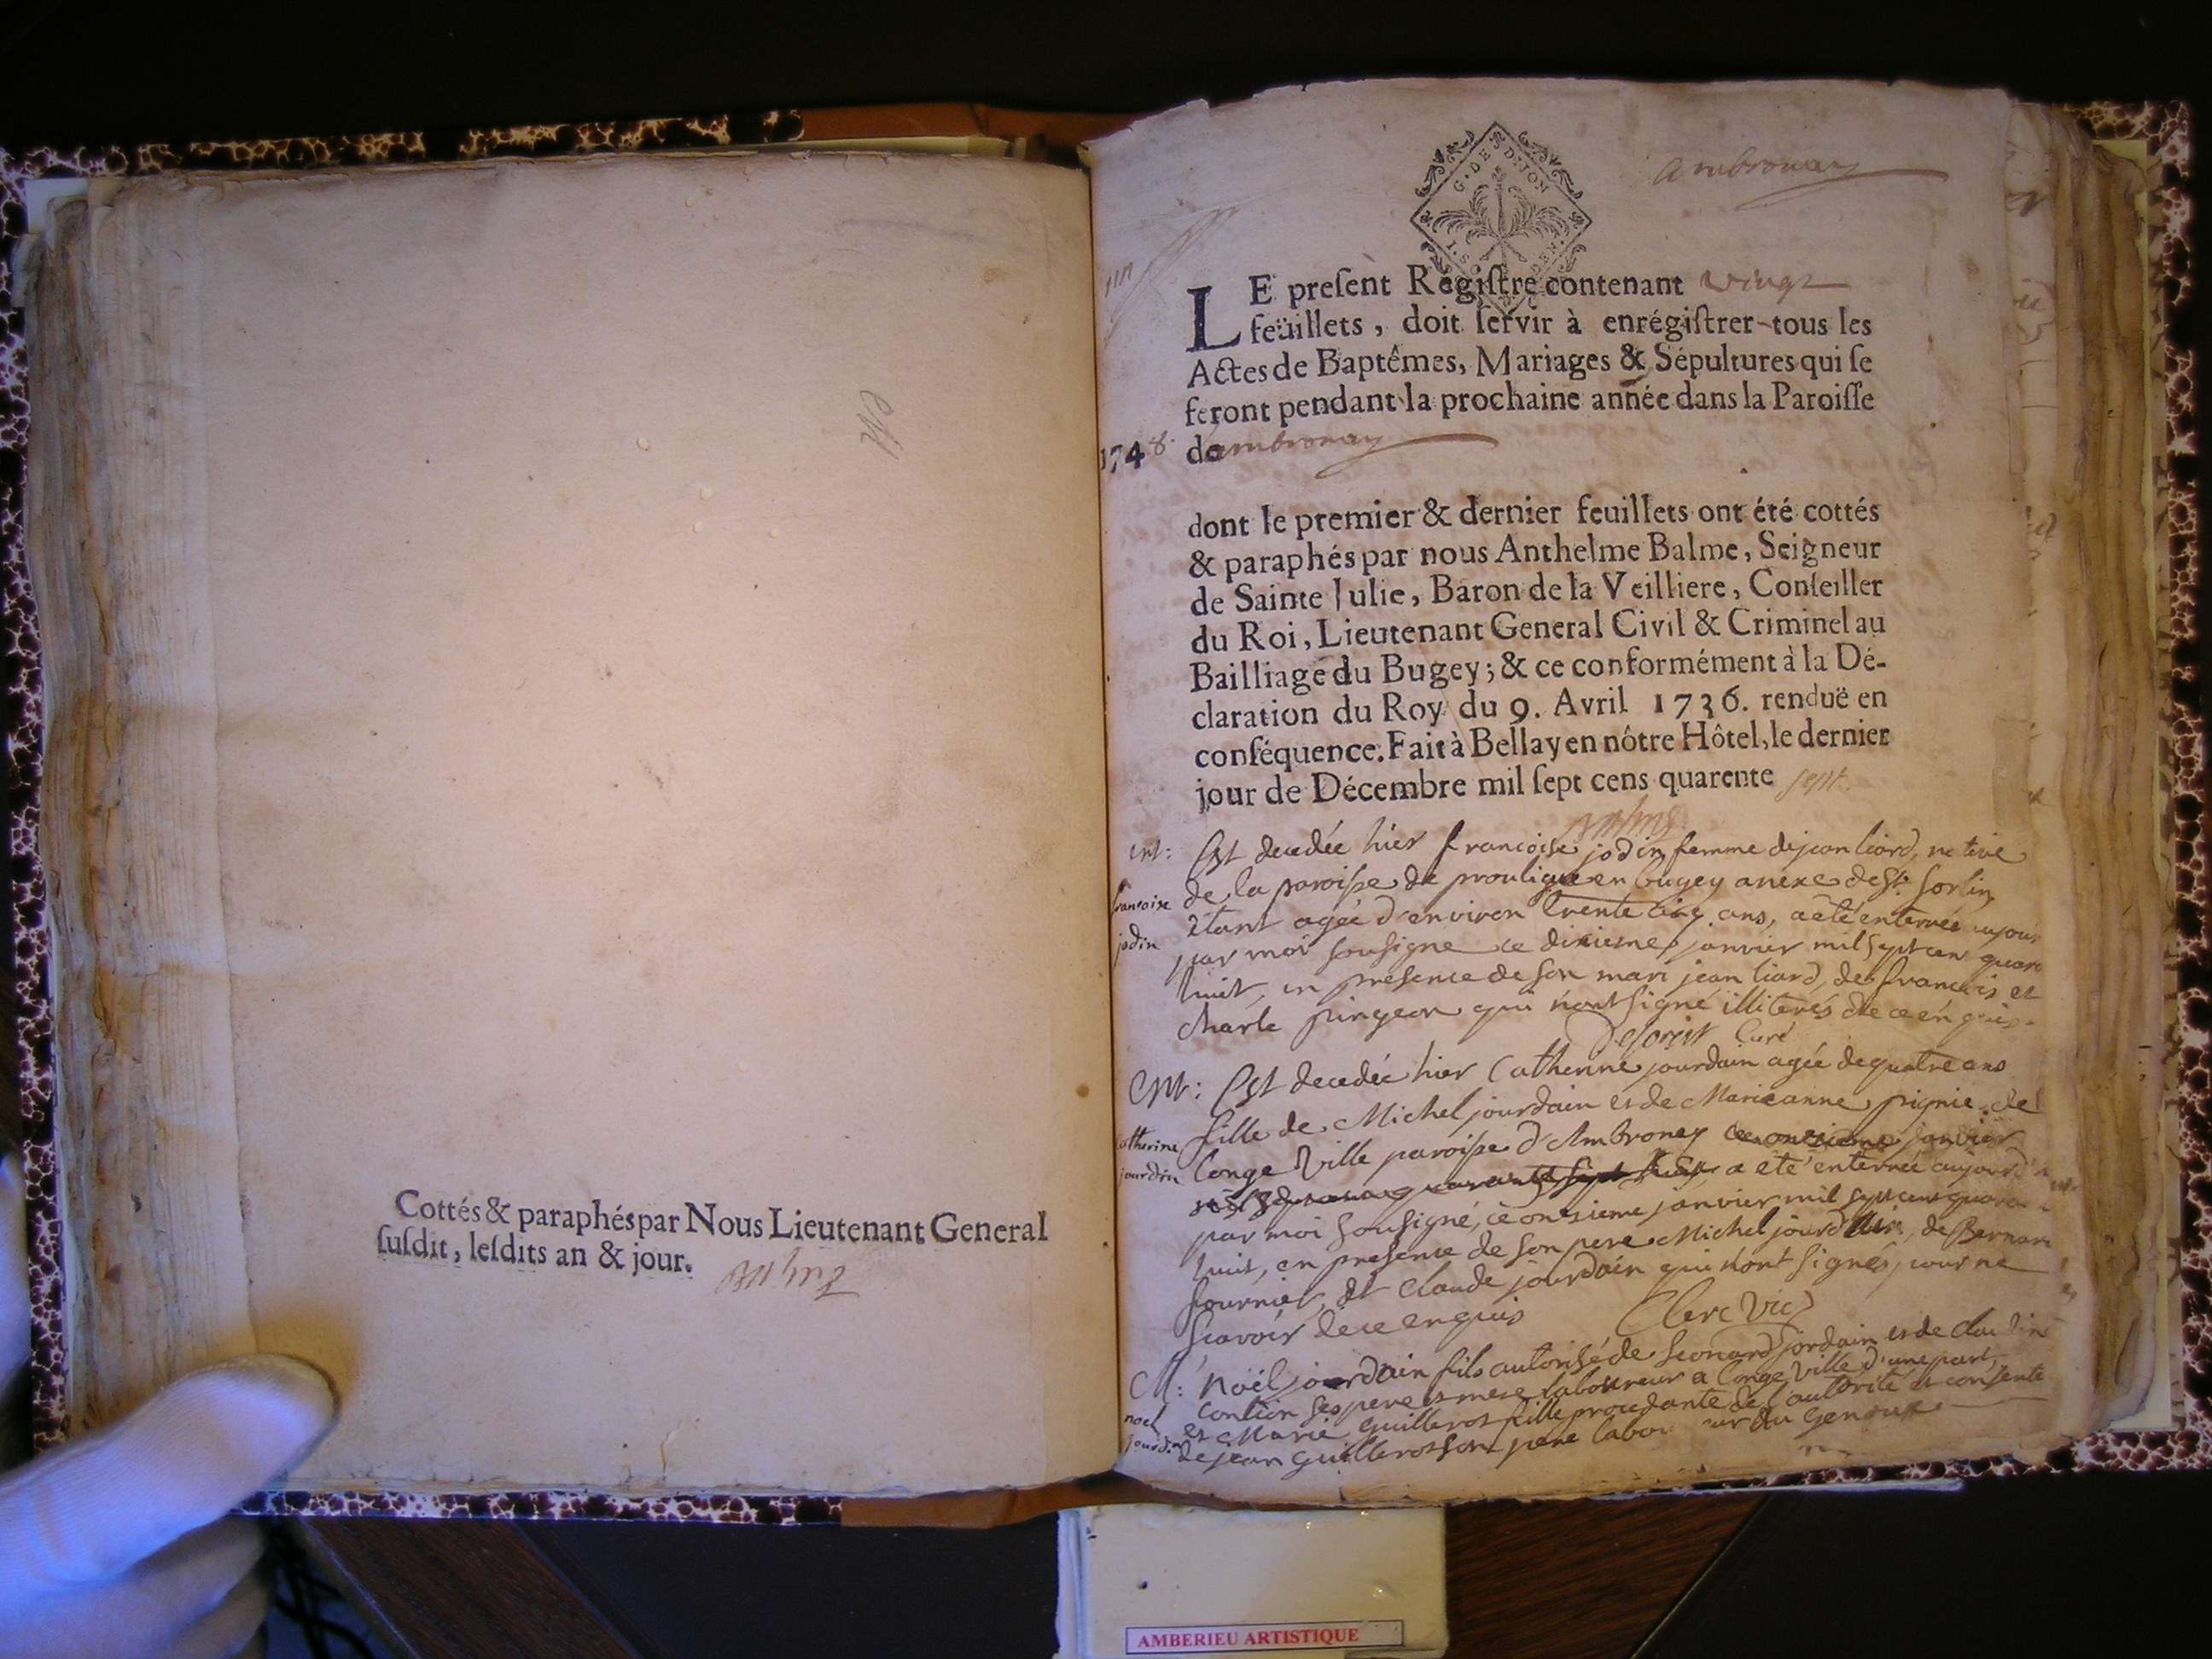 Cottés & paraphés par Nous Lieutenant General
ſuſdit, leſdits an & jour.
Balme
G. DE DIJON
ambronay
LE preſent Regiſtre contenant vingt
feüillets, doit ſervir à enrégiſtrer tous les
Actes de Baptêmes, Mariages & Sépultures qui ſe
feront pendant la prochaine année dans la Paroiſſe
1748
dambronay
dont le premier & dernier feuillets ont été cottés
& paraphés par nous Anthelme Balme, Seigneur
de Sainte Julie, Baron de la Veilliere, Conſeiller
du Roi, Lieutenant General Civil & Criminel au
Bailliage du Bugey; & ce conformément à la Dé-
claration du Roy du 9. Avril 1736. renduë en
conſéquence. Fait à Bellay en nôtre Hôtel, le dernier
jour de Décembre mil ſept cens quarente sept
Balme
Ent: Est decedée hier francoise jodin femme de jean liard, native
francoise
jodin
de la paroisse de proulieu en bugey anexe de St Sorlin
étant agée d'environ trente cinq ans, a été enterrée
par moi sousigne ce dixieme janvier mil sept cen quara
huit, en presence de son mari jean liard, de francois et
charle pingeon qui n'ont signé illiterés de ce
Curé
Ent: Est decedée hier Catherine jourdain agée de quatre ans
catherine
jourdin
fille de Michel jourdain et de Marieanne pignie de
longe Ville paroisse d'Ambronay ce onzieme janvier
a été enterrée aujourd
par moi sousigné, ce onzieme janvier mil sept cens quaran
huit, en presence de son pere Michel jourdain, de Bernard
fournier, et Claude jourdain qui n'ont signés pour ne
scavoir de ce enquis
Clerc Vic
M: noël jourdain fils autorisé de leonard jordain et de claudine
noel
jourdin
ses pere et mere laboureur a longe Ville d'une part,
et Marie guillerot fille procedante de l'autorité et consente
de jean guillerot son pere laboureur du genoux
AMBERIEU ARTISTIQUE